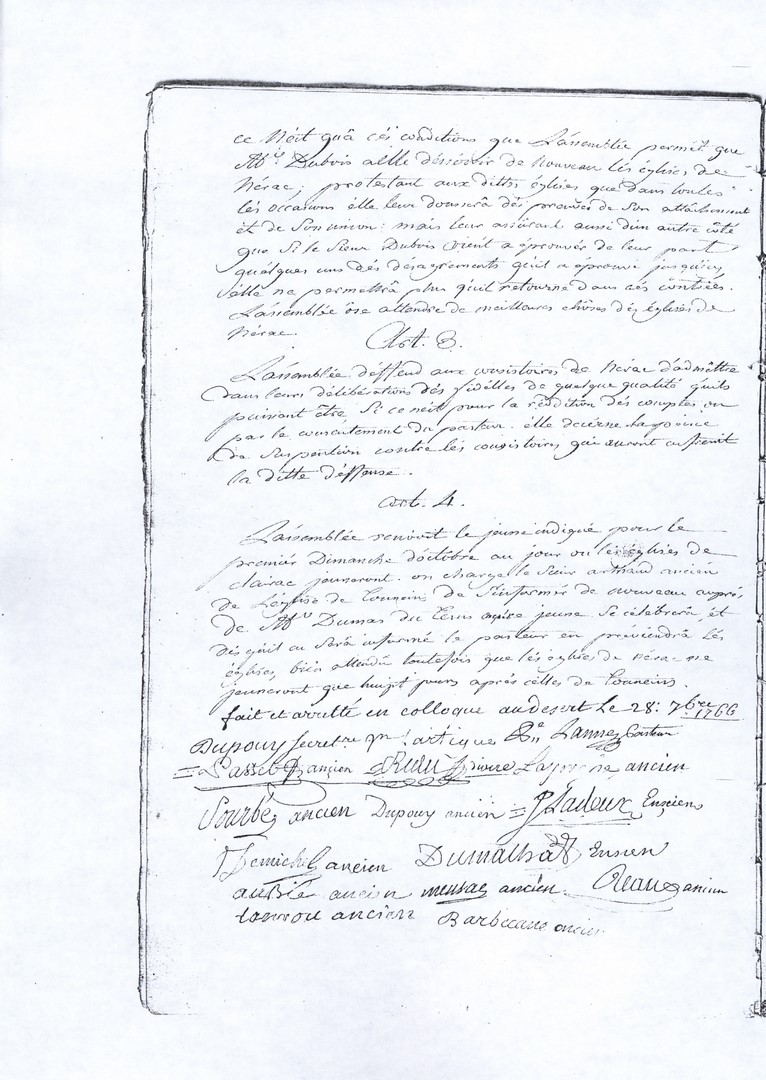 ce n'éit qu'â cés conditions que L'assemblée permét que
Mr. Dubois aille désservir de nouveau lés églises de
Nérac; protestant aux dittes églises que dans toutes
lés occasions élle leur donnerâ dés preuves de son attâchement
ét de son union: mais leur assûrant aussi d'un autre côté
que si le sieur Dubois vient a éprouvér de leur part
quelques uns dés désagrements qu'il a éprouvé jusqu'icy
élle ne permettrâ plus qu'il retourne dans cés contrées.
L'assemblée ôse attendre de meilleures chôses dés églises de
Nérac.
Art. 3.
L'assemblée déffend aux consistoires de Nérac d'admêttre
dans leurs délibérations dés fidélles de quelque qualité qu'ils
puissent être si ce n'éit pour la réddition dés comptes ou
par le consentement du pasteur. élle décerne la peine
de suspention contre lés consistoires qui auront enfreint
la ditte déffense.
art. 4.
L'assemblée renvoit le jeune indiqué pour le
premiér Dimanche d'octobre au jour ou lés églises de
clairac jeuneront. on charge le sieur arthaud ancién
de L'églîse de Tonneins de s'informér de nouveau auprés
de Mr. Dumas du tems jeune se célébrerâ, ét
dés qu'il en serâ informé le pasteur en préviendrâ lés
églises, bién attendû toutefois que lés églises de nérac ne
jeuneront que huit jours aprés célles de Tonneins.
fait et arrêtté en colloque au desert le 28: 7bre 1766
Dupouy secretre pr. l'artique Lannes Pasteur
ancien ancien
Sourbé ancien Dupouy ancien Ladoux Ensiens
ancien Ensien
ancien ancien ancien
ancien Barbecane ancien